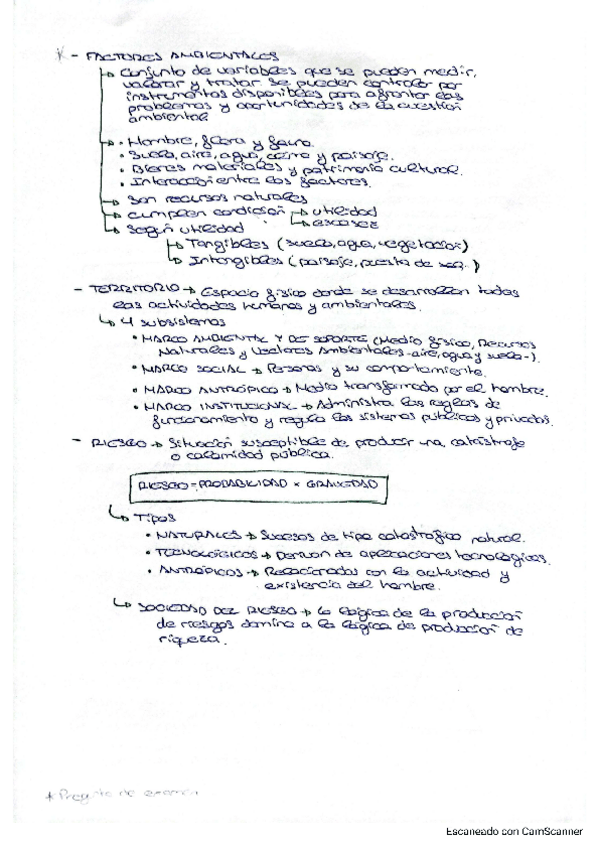 * - FACTORES AMBIENTALES
↳ Conjunto de variables que se pueden medir,
valorar y tratar. Se pueden controlar por
instrumentos disponibles para afrontar los
problemas y oportunidades de la cuestión
ambiental
↳ • Hombre, flora y fauna.
• Suelo, aire, agua, clima y paisaje.
• Bienes materiales y patrimonio cultural.
• Interacción entre los factores.
↳ Son recursos naturales
↳ cumplen condición ↳ utilidad
↳ escasez
↳ Según utilidad
↳ Tangibles (suelo, agua, vegetación)
↳ Intangibles (paisaje, puesta de sol..)
- TERRITORIO → Espacio físico donde se desarrollan todas
las actividades humanas y ambientales.
↳ 4 subsistemas
• MARCO AMBIENTAL Y DE SOPORTE (Medio físico, Recursos
Naturales y Vectores Ambientales -aire, agua y suelo-).
• MARCO SOCIAL → Personas y su comportamiento.
• MARCO ANTRÓPICO → Medio transformado por el hombre.
• MARCO INSTITUCIONAL → Administra las reglas de
funcionamiento y regula los sistemas públicos y privados.
- RIESGO → Situación susceptible de producir una catástrofe
o calamidad pública.
RIESGO = PROBABILIDAD × GRAVEDAD
↳ Tipos
• NATURALES → Sucesos de tipo catastrófico natural.
• TECNOLÓGICOS → Derivan de aplicaciones tecnológicas.
• ANTRÓPICOS → Relacionados con la actividad y
existencia del hombre.
↳ SOCIEDAD DEL RIESGO → La lógica de la producción
de riesgos domina a la lógica de producción de
riqueza.
* Pregunta de examen
Escaneado con CamScanner